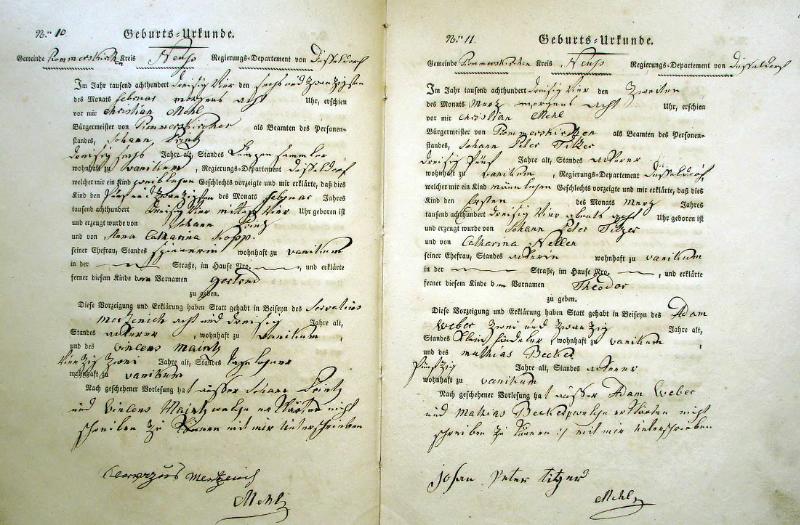 Nro. 10 Geburts-Urkunde.
Gemeinde Rommerskirchen Kreis Neuss Regierungs-Departement von Düsseldorf
Im Jahr tausend achthundert dreisig vier den sechs und zwanzigsten
des Monats februar morgens acht Uhr, erschien
vor mir Christian Mehl
Bürgermeister von Rommerskirchen als Beamten des Personen-
standes, Johann
dreisig sechs Jahre alt, Standes
wohnhaft zu vanikum, Regierungs-Departement Düsseldorf
welcher mir ein Kind weiblichen Geschlechts vorzeigte und mir erklärte, daß dies
Kind den fünf und zwanzigsten des Monats februar Jahres
tausend achthundert dreisig vier mittags vier Uhr geboren ist
und erzeugt wurde von Johann
und von Anna Catharina
seiner Ehefrau, Standes spinnerin wohnhaft zu vanikum
in der Straße, im Hause Nro. , und erklärte
ferner diesem Kinde den Vornamen gertrud
zu geben.
Diese Vorzeigung und Erklärung haben Statt gehabt in Beiseyn des Servatius
mertzenich acht und dreisig Jahre alt,
Standes ackerer, wohnhaft zu vanikum,
und des vincens maintz
vierzig zwei Jahre alt, Standes tagelohner
wohnhaft zu vanikum
Nach geschehener Vorlesung hat ausser Johann
und vincens Maintz welche erklärten nicht
schreiben zu können mit mir unterschrieben
mertzenich
Mehl
Nro. 11 Geburts-Urkunde.
Gemeinde Rommerskirchen Kreis Neuss Regierungs-Departement von Düsseldorf
Im Jahr tausend achthundert dreisig vier den zweiten
des Monats Mertz morgens acht Uhr, erschien
vor mir Christian Mehl
Bürgermeister von Rommerskirchen als Beamten des Personen-
standes, Johann Peter Titzer
dreisig fünf Jahre alt, Standes ackerer
wohnhaft zu vanikum, Regierungs-Departement Düsseldorf
welcher mir ein Kind männlichen Geschlechts vorzeigte und mir erklärte, daß dies
Kind den ersten des Monats Mertz Jahres
tausend achthundert dreisig vier abends acht Uhr geboren ist
und erzeugt wurde von Johann Peter Titzer
und von Catharina Nellen
seiner Ehefrau, Standes ackerin wohnhaft zu vanikum
in der Straße, im Hause Nro. , und erklärte
ferner diesem Kinde den Vornamen Theodor
zu geben.
Diese Vorzeigung und Erklärung haben Statt gehabt in Beiseyn des Adam
Weber zwei und zwanzig Jahre alt,
Standes klein händeler, wohnhaft zu vanikum,
und des mathias Becker
fünfzig Jahre alt, Standes ackerer
wohnhaft zu vanikum
Nach geschehener Vorlesung hat ausser Adam Weber
und Mathias Becker welche erklärten nicht
schreiben zu können mit mir unterschrieben
Johan Peter titzer
Mehl